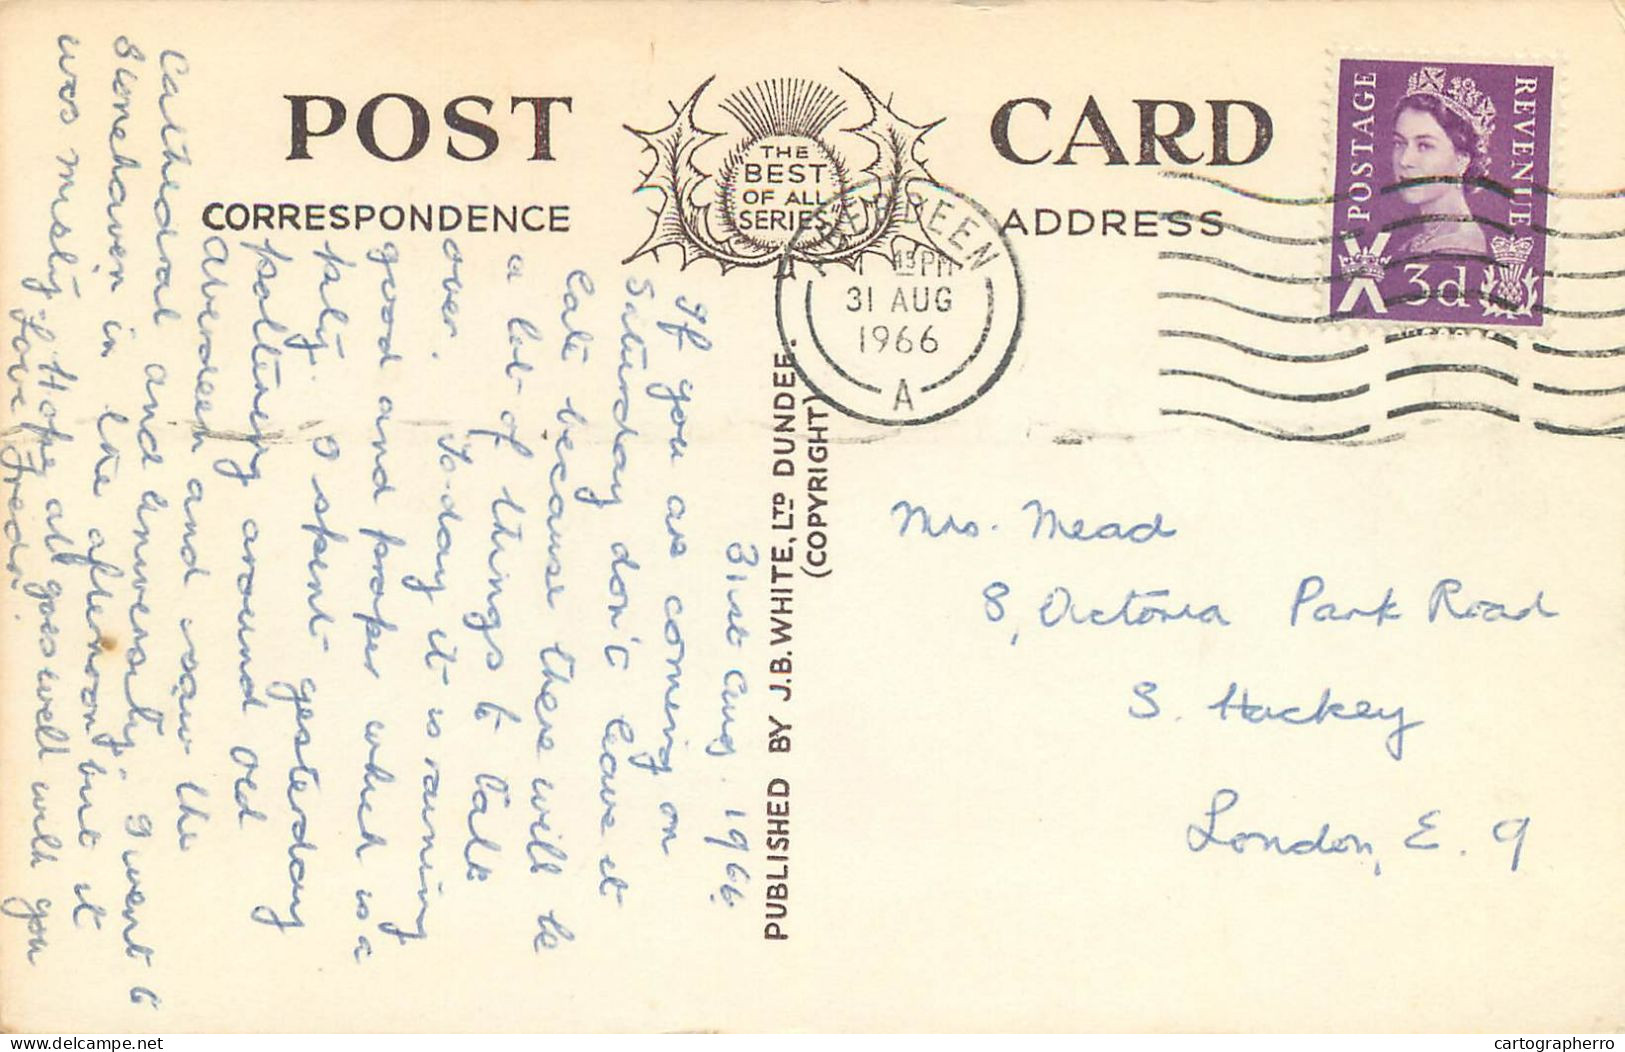 POST CARD
CORRESPONDENCE
THE
BEST
OF ALL
SERIES
ADDRESS
POSTAGE
REVENUE
3d
ABERDEEN
1 45PM
31 AUG
1966
A
PUBLISHED BY J.B. WHITE, LTD DUNDEE.
(COPYRIGHT)
31st Aug. 1966.
If you as coming on
Saturday don't leave it
late because there will be
a lot of things to talk
over. To-day it is raining
good and proper which is a
pity. I spent yesterday
pottering around old
Aberdeen and saw the
Cathedral and University. I went to
Stonehaven in the afternoon but it
was misty. Hope all goes well with you
Love, Freda.
Mrs. Mead
8, Victoria Park Road
S. Hackey
London, E. 9
www.delcampe.net
cartographerro